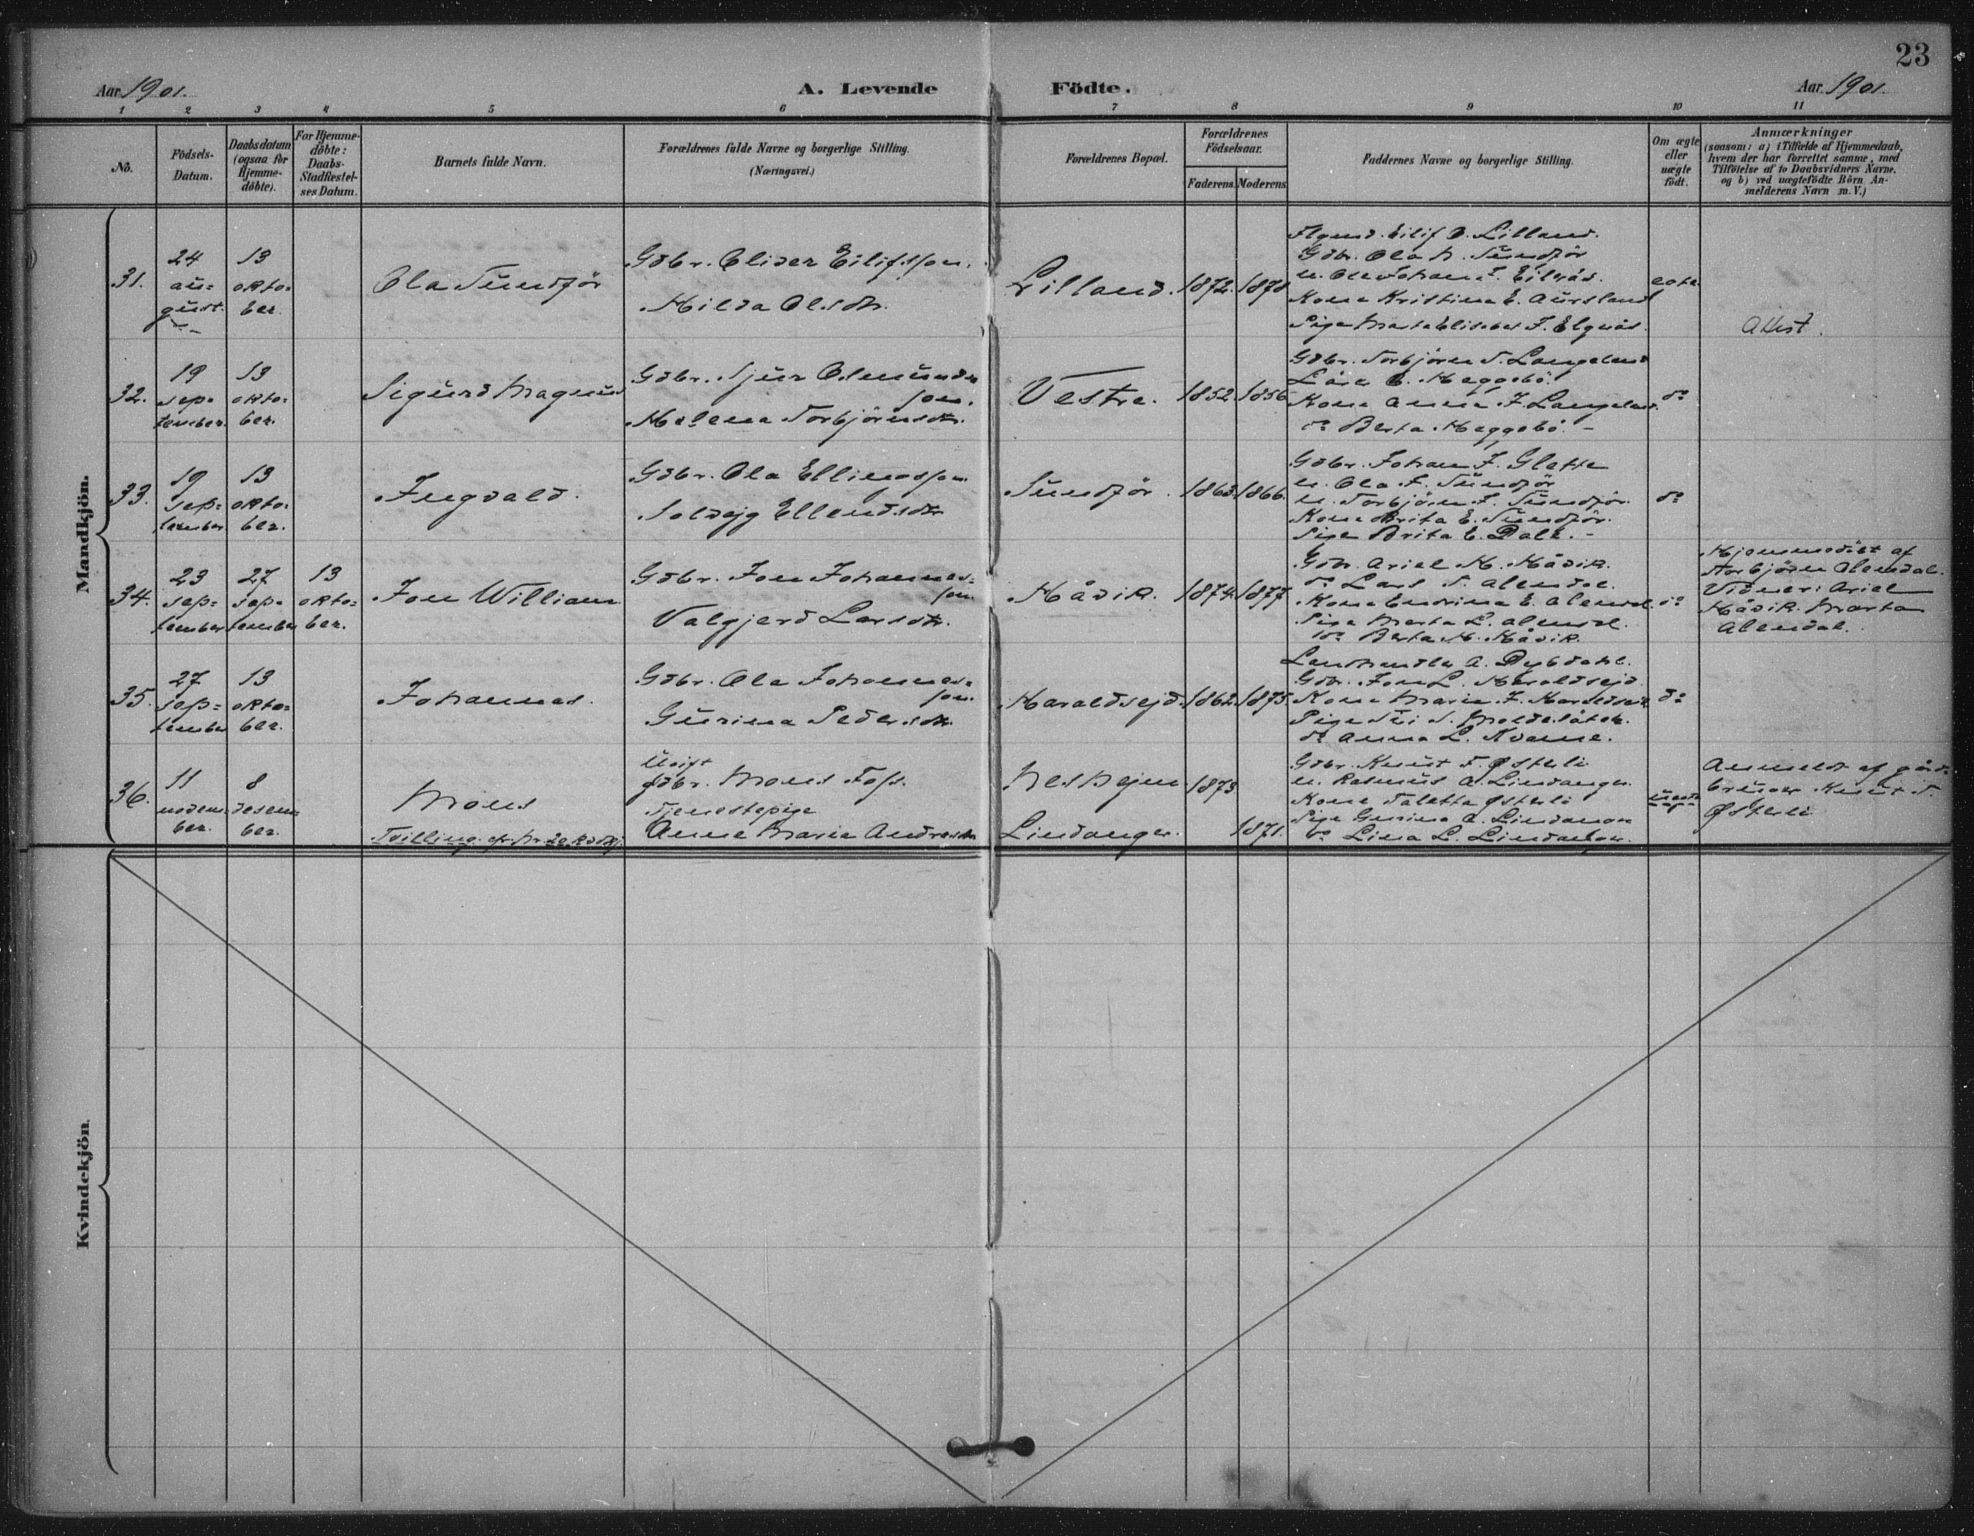 23
Aar 1901.
A. Levende Födte.
Aar 1901.
1 2 3 4 5 6 7 8 9 10 11
No.
Födsels-
Datum.
Daabsdatum
(ogsaa for
Hjemme-
döbte).
For Hjemme-
döbte:
Daabs-
Stadfæstel-
ses Datum.
Barnets fulde Navn.
Forældrenes fulde Navne og borgerlige Stilling.
(Næringsvei.)
Forældrenes Bopæl.
Forældrenes
Födselsaar.
Faderens.
Moderens
Faddernes Navne og borgerlige Stilling.
Om ægte
eller
uægte
födt.
Anmærkninger
(saasom: a) i Tilfælde af Hjemmedaab,
hvem der har forrettet samme, med
Tilföielse af to Daabsvidners Navne.
og b) ved uægtefödte Börn An-
melderens Navn m. V.)
Mandkjön.
31.
24
au-
gust.
13
okto-
ber
Ola Sundför
Gdbr. Eilifsson.
Hilda Olsdtr.
Lilland.
1872.
1878
Eilif O. Lilland.
Gdbr. Ola
Kone Kristina E. Aursland
egte
Attest.
32.
19
sep-
tember.
13
okto-
ber.
Sigurd Magnus
Gdbr. Sjur
son.
Helena Torbjörnsdtr.
Vestre.
1852.
1856
Gdbr. Torbjörn T. Langeland
Haggebö.
Kone Anna J. Langeland.
do Berta Haggebö. -
do
33.
19
sep-
tember
13
okto-
ber.
Ingvald.
Gdbr. Ola Ellingsson.
Solveig Ellendsdtr
Sundför.
1863.
1866.
Gdbr. Johan J. Glette
u. Ola J. Sundför
u. Torbjörn J. Sundför.
Kone Brita E. Sundför.
Pige Brita E. Dale. -
do
34.
23
sep-
tember
27
sep-
tember
13
okto-
ber.
Jon William
Gdbr. Jon Johannes-
son
Valgjerd Larsdtr.
Håvik.
1874.
1877
Gdbr. Ariel H. Håvik.
do Lars T. Alendal.
Kone Endrina E. Alendal.
Pige Marta L. Alendal.
do Berta H. Håvik.
do
Hjemmedöbt af
Torbjörn Alendal.
Vidner: Ariel
Håvik. Marta
Alendal.
35.
27
sep-
tember
13
okto-
ber.
Johannes.
Gdbr. Ola Johannes-
son.
Gurina Pedersdtr.
Haraldsejd.
1862.
1875.
Landhandler A. Dybdahl.
Gdbr. Jon L. Haraldsejd
Kone Marie J. Haraldsejd
do Anna L. Kvame.
do
36.
11
novem-
ber.
8
desem-
ber.
Mons
Tvilling af Nr 20 Kvkj.
Ugift
gdbr. Mons Toft.
Tjenestepige
Anne Marie Andreasdtr
Neshejm
Lindanger.
1873.
1871.
Gdbr. Knut T. Österli
u. Rasmus A. Lindanger.
Kone Taletta Österli
Pige Gurina A. Lindanger
do Lina L. Lindanger.
uægte
Anmeldt af gård-
bruger Knut T.
Österli
Kvindekjön.